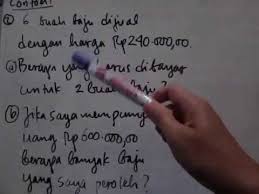 Contoh
① 6 buah baju dijual
dengan harga Rp240.000,00.
ⓐ Berapa yang harus dibayar
untuk 2 buah baju?
ⓑ Jika saya mempunyai
uang Rp600.000,00
berapa banyak baju
yang saya peroleh?